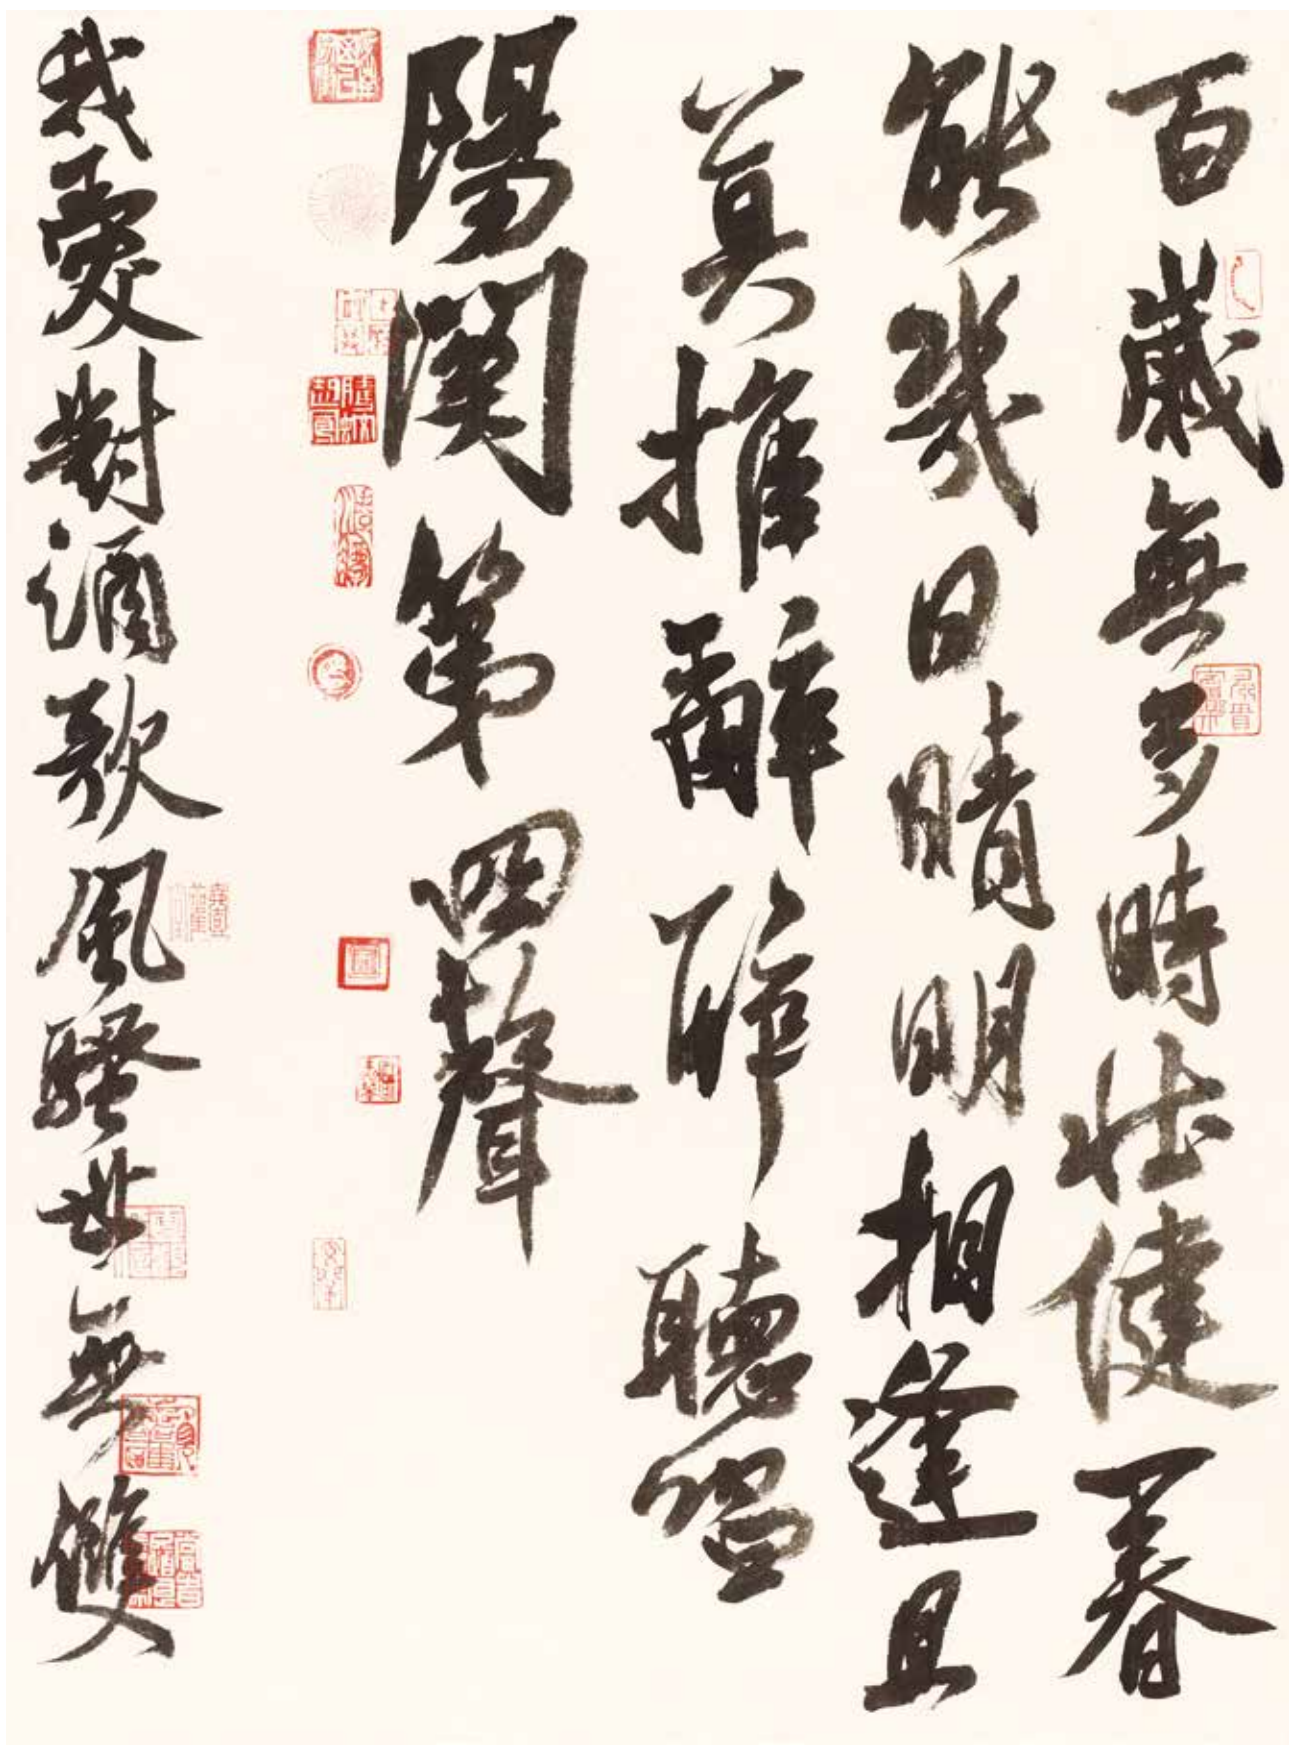 百歲無多時壯健一春
能幾日晴明相逢且
莫推辭醉聽唱
陽關第四聲
我愛對酒歌風騷世無雙